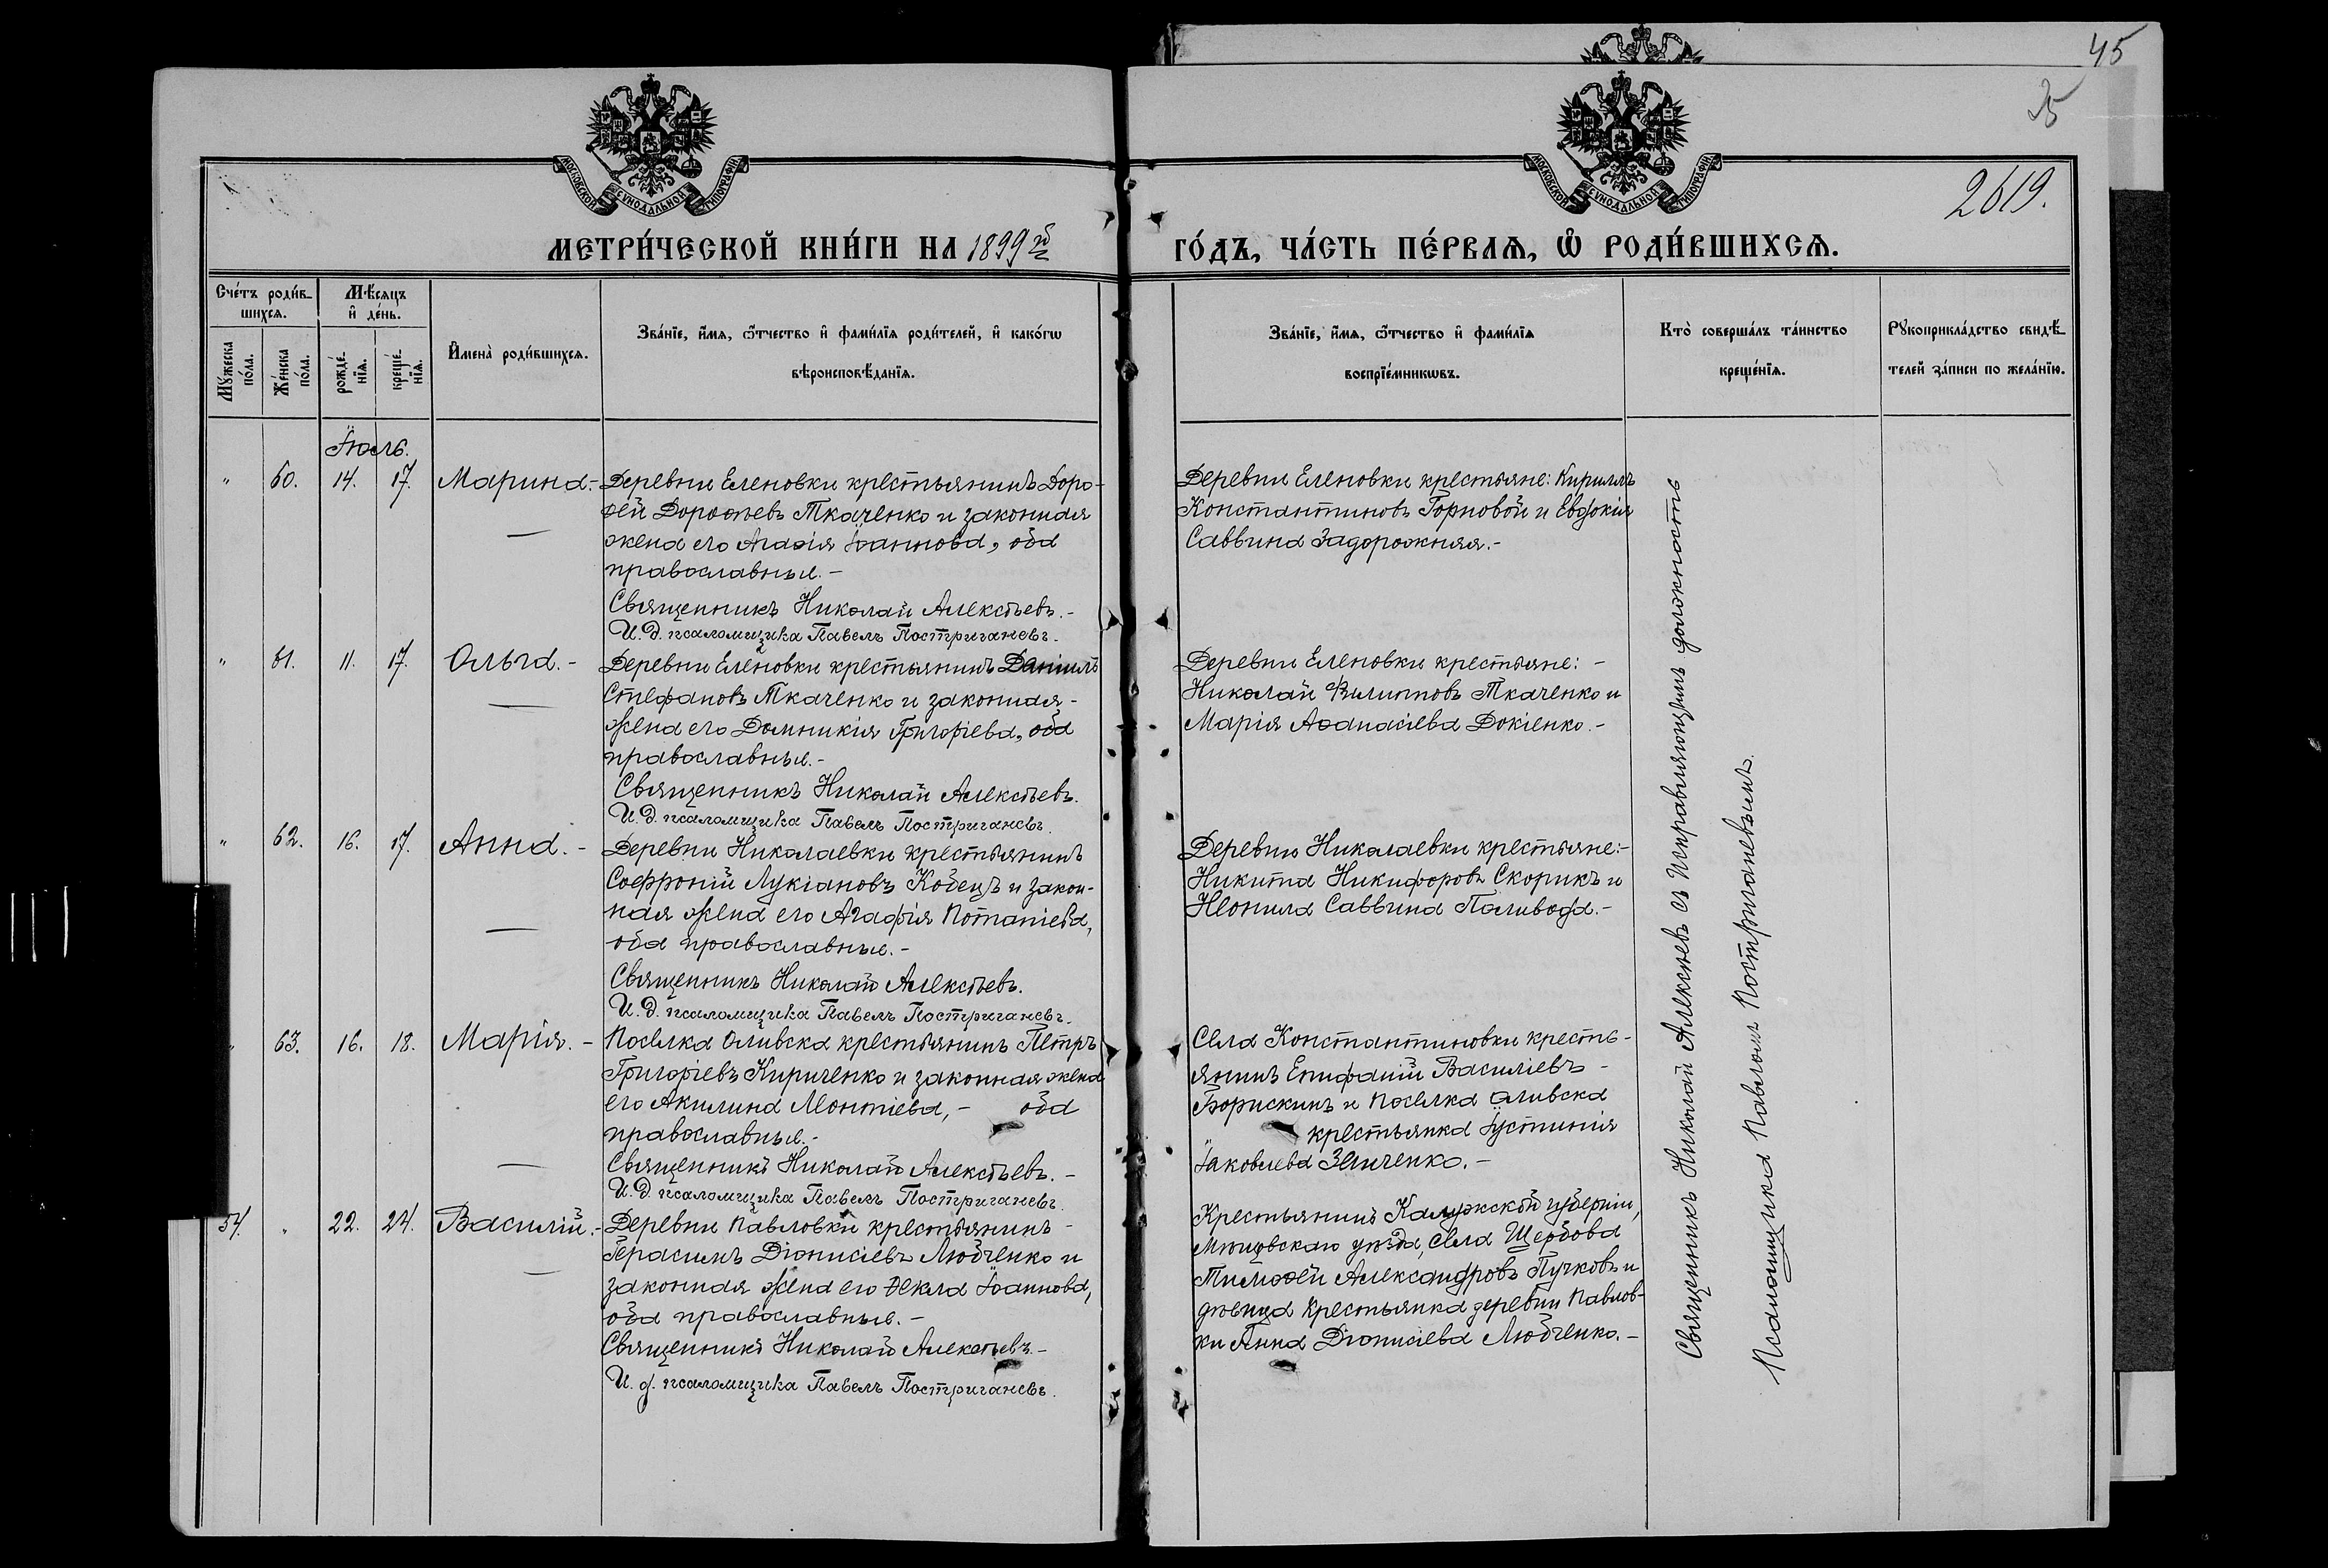 45
25
2619.
МОСКОВСКОЙ СѴНОДАЛЬНОЙ ТИПОГРАФІИ
МОСКОВСКОЙ СѴНОДАЛЬНОЙ ТИПОГРАФІИ
МЕТРИ́ЧЕСКОЙ КНИ́ГИ НА 1899й ГО́ДЪ, ЧА́СТЬ ПЕ́РВАѦ, Ѡ҆ РОДИ́ВШИХСѦ.
Счє́тъ роди́в-
шихсѧ.
Мѣ́сѧцъ
и҆ дє́нь.
Мꙋ́жеска
по́ла.
Же́нска
по́ла.
рождє́-
нїѧ.
крещє́-
нїѧ.
И҆мена̀ роди́вшихсѧ.
Зва́нїе, и҆́мѧ, ѻ҆́тчество и҆ фами́лїѧ роди́телей, и҆ како́гѡ
вѣроисповѣ́данїѧ.
Зва́нїе, и҆́мѧ, ѻ҆́тчество и҆ фами́лїѧ
воспрїе́мникѡвъ.
Кто̀ соверша́лъ та́инство
креще́нїѧ.
Рꙋкоприкла́дство свидѣ́-
телей за́писи по жела́нїю.
Іюль.
" 60. 14. 17. Марина.- Деревни Еленовки крестьянинъ Доро-
ѳей Дороѳеевъ Ткаченко и законная
жена его Агаѳія Іоаннова, оба
православные.-
Священникъ Николай Алексѣевъ.-
И.д. псаломщика Павелъ Постригачевъ.
Деревни Еленовки крестьяне: Кириллъ
Константиновъ Горловой и Евдокія
Саввина Задорожняя.-
" 61. 11. 17. Ольга.- Деревни Еленовки крестьянинъ Даніилъ
Стефановъ Ткаченко и законная-
жена его Домникія Григоріева, оба
православные.-
Священникъ Николай Алексѣевъ.
И.д. псаломщика Павелъ Постригачевъ.
Деревни Еленовки крестьяне:-
Николай Филипповъ Ткаченко и
Марія Аѳанасіева Докіенко.-
" 62. 16. 17. Анна.- Деревни Николаевки крестьянинъ
Софроній Лукіановъ Кобецъ и закон-
ная жена его Агафія Потапіева,
оба православные.-
Священникъ Николай Алексѣевъ.
И.д. псаломщика Павелъ Постригачевъ.
Деревни Николаевки крестьяне:-
Никита Никифоровъ Скорикъ и
Неонила Саввина Паливода.-
" 63. 16. 18. Марія.- Поселка Оливска крестьянинъ Петръ
Григоріевъ Кириченко и законная жена
его Акилина Леонтіева,- оба
православные.-
Священникъ Николай Алексѣевъ.-
И.д. псаломщика Павелъ Постригачевъ.
Села Константиновки кресть-
янинъ Епифаній Василіевъ-
Борискинъ и поселка Оливска
крестьянка Іустинія
Іаковлева Зенченко.-
54. " 22. 24. Василій.- Деревни Павловки крестьянинъ-
Герасимъ Діонисіевъ Любченко и
законная жена его Ѳекла Іоаннова,
оба православные.-
Священникъ Николай Алексѣевъ-
И.д. псаломщика Павелъ Постригачевъ.
Крестьянинъ Калужской губерніи,
уѣзда, села Щербова
Тимоѳей Александровъ Пучковъ и
дѣвица крестьянка деревни Павлов-
ки Анна Діонисіева Любченко.-
Священникъ Николай Алексѣевъ съ исправляющимъ должность
псаломщика Павломъ Постригачевымъ.